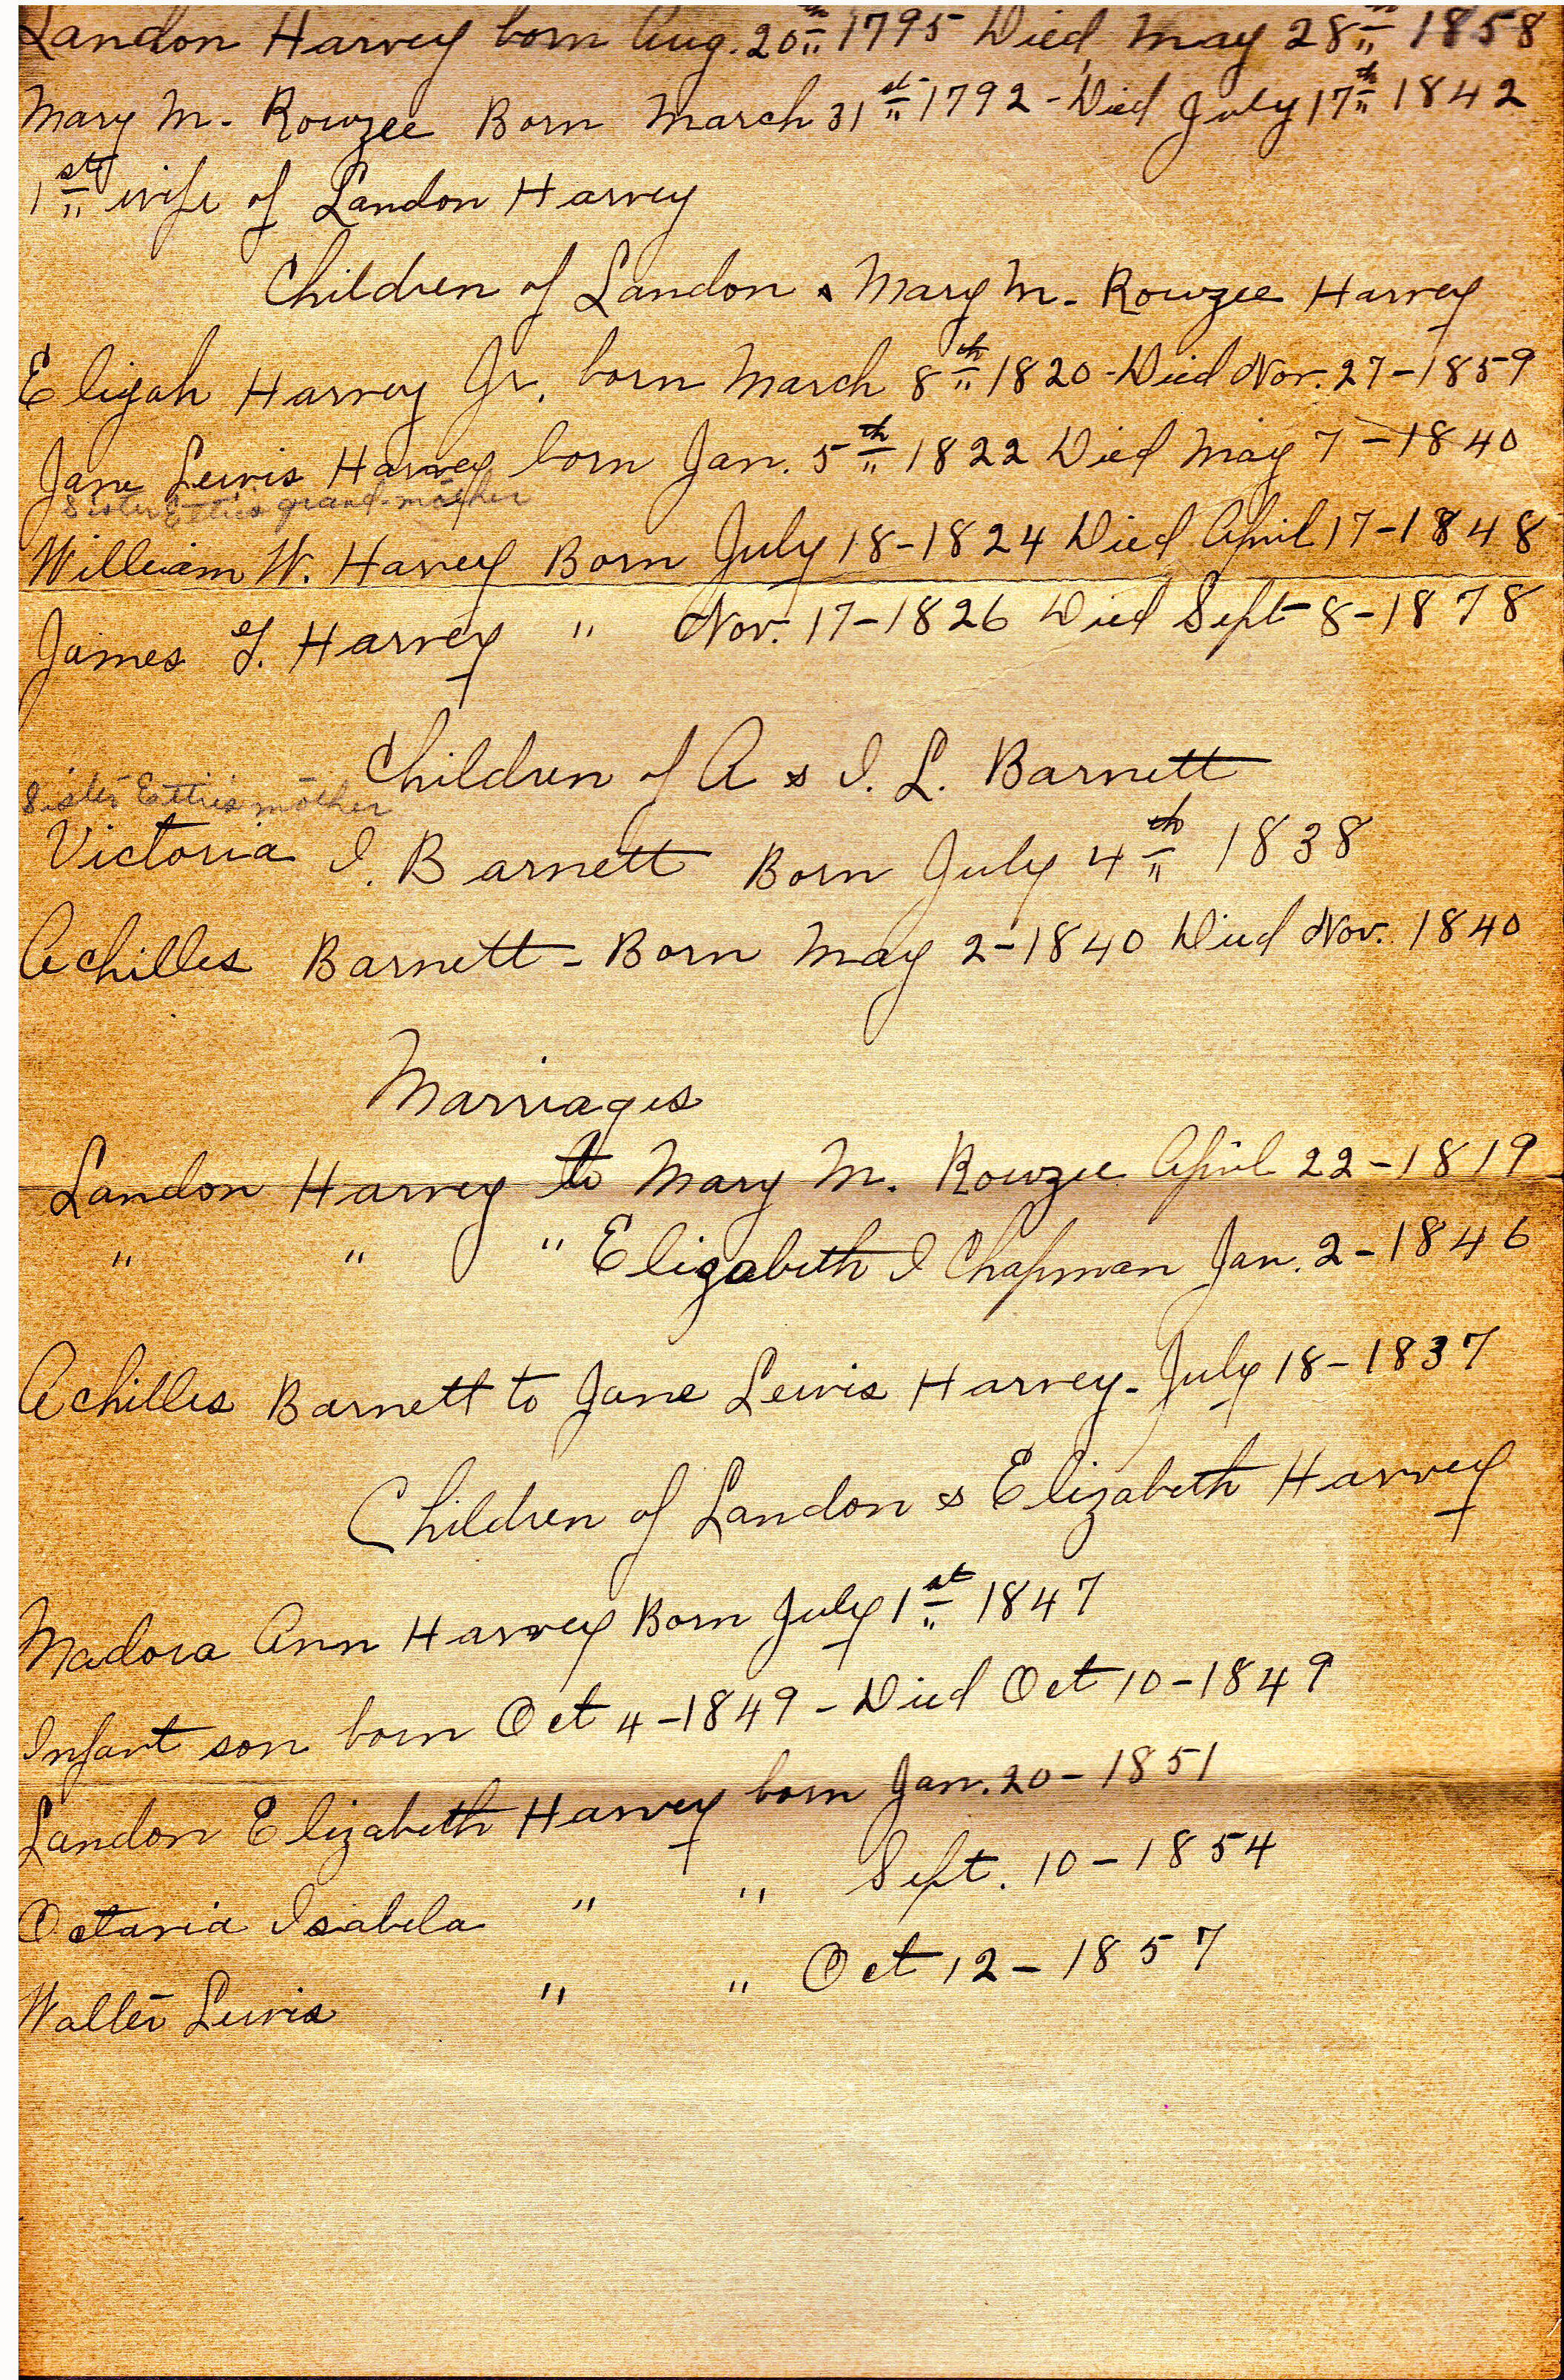 Landon Harvey born Aug. 20th 1795 Died, May 28th 1858
Mary M. Rowzee Born March 31st 1792 - Died July 17th 1842
1st wife of Landon Harvey
Children of Landon & Mary M. Rowzee Harvey
Elijah Harvey Jr. born March 8th 1820 - Died Nov. 27-1859
Jane Lewis Harvey born Jan. 5th 1822 Died May 7-1840
Sister Ettie's grand-mother
William W. Harvey Born July 18-1824 Died April 17-1848
James T. Harvey " Nov. 17-1826 Died Sept 8-1878
Children of A & I. L. Barnett
Sister Ettie's mother
Victoria I. Barnett Born July 4th 1838
Achilles Barnett - Born May 2-1840 Died Nov. 1840
Marriages
Landon Harvey to Mary M. Rowzee April 22-1819
" " " Elizabeth I Chapman Jan. 2-1846
Achilles Barnett to Jane Lewis Harvey - July 18-1837
Children of Landon & Elizabeth Harvey
Madora Ann Harvey Born July 1st 1847
Infant son born Oct 4-1849 - Died Oct 10-1849
Landon Elizabeth Harvey born Jan. 20-1851
Octavia Isabela " " Sept. 10-1854
Walter Lewis " " Oct 12-1857